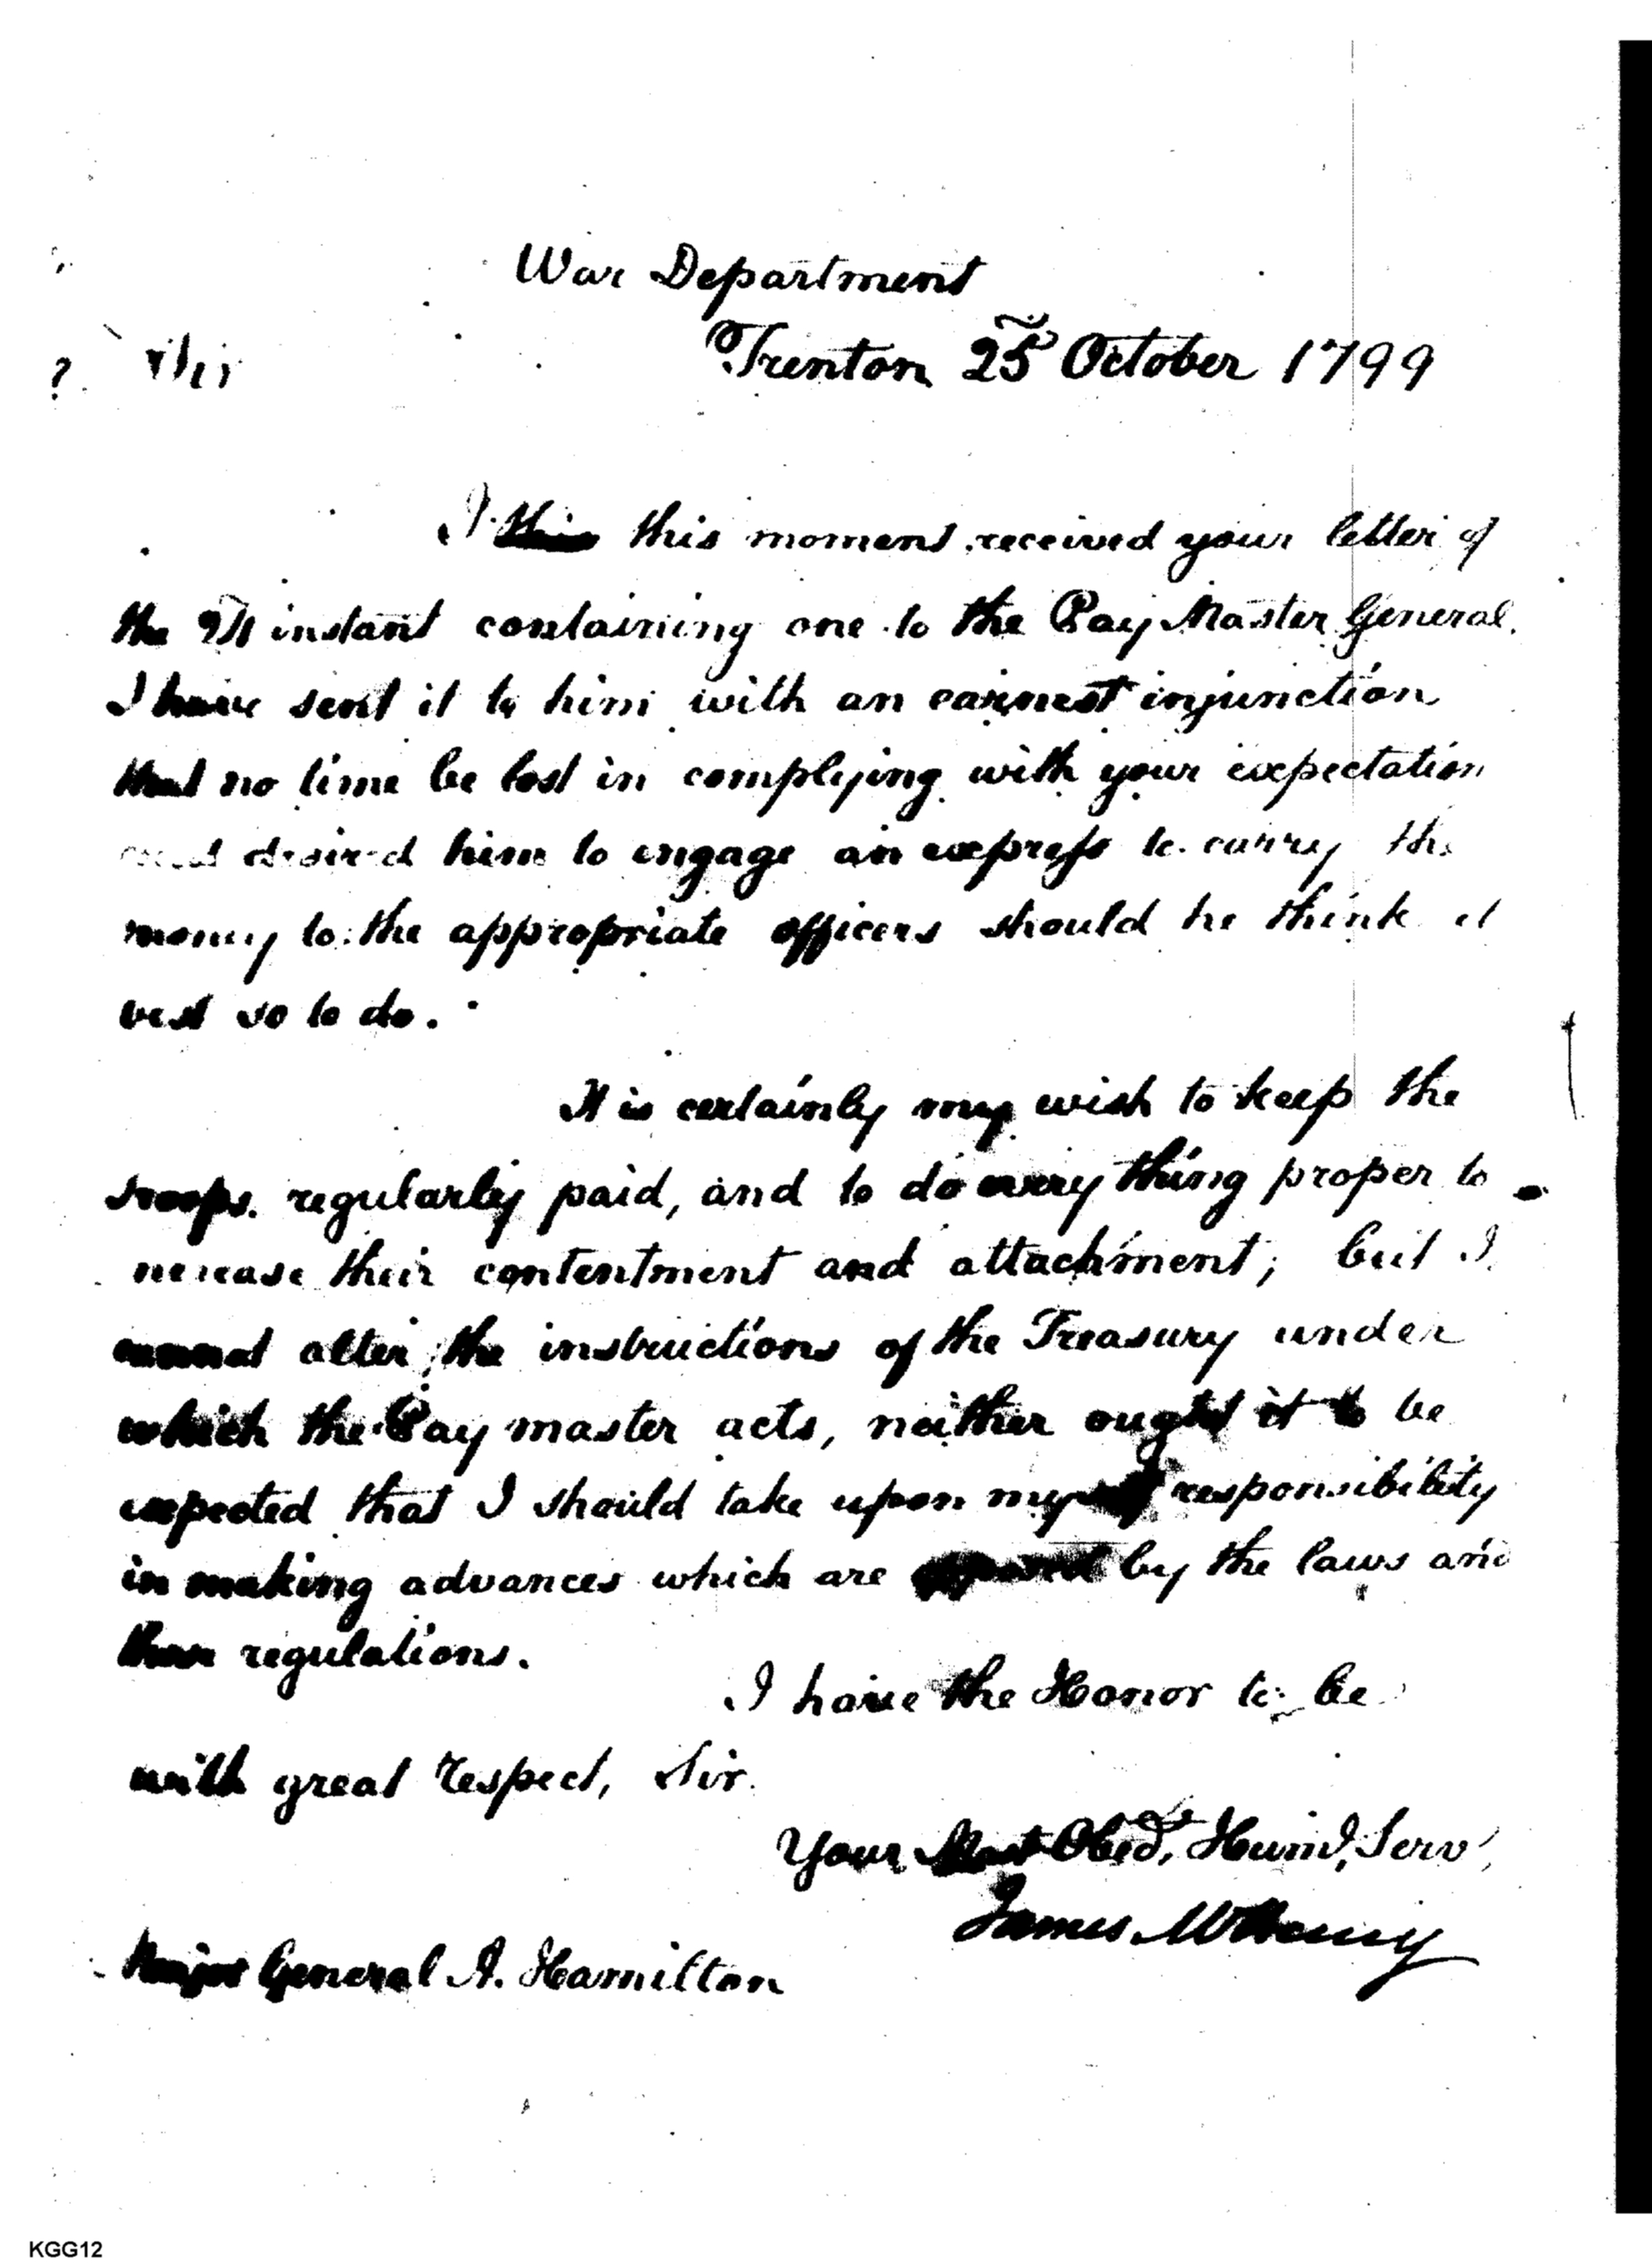 War Department
Trenton 25th October 1799
I this this moment received your letter of
the instant containing one to the Pay Master General.
I have sent it to him with an earnest injunction
that no time be lost in complying with your expectation
and desired him to engage an express to carry the
money to the appropriate officers should he think it
best so to do.
It is certainly my wish to keep the
troops regularly paid, and to do every thing proper to
increase their contentment and attachment; but I
cannot alter the instructions of the Treasury under
which the Pay master acts, neither ought it to be
expected that I should take upon myself responsibility
in making advances which are by the laws and
regulations.
I have the Honor to be
with great respect, Sir.
Your Most Obed, Hum, Serv
James McHenry
Major General A. Hamilton
KGG12